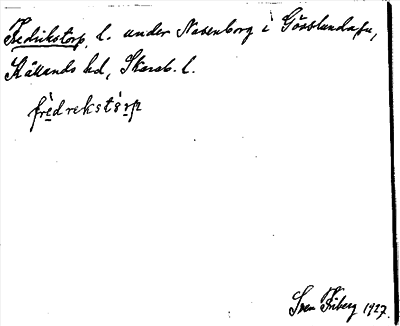 Fredrikstorp, l. under Nasenborg i Gösslundasn,
Kållands hd, Skarab. l.
frèdrekstòrp
Sven Friberg 1927.